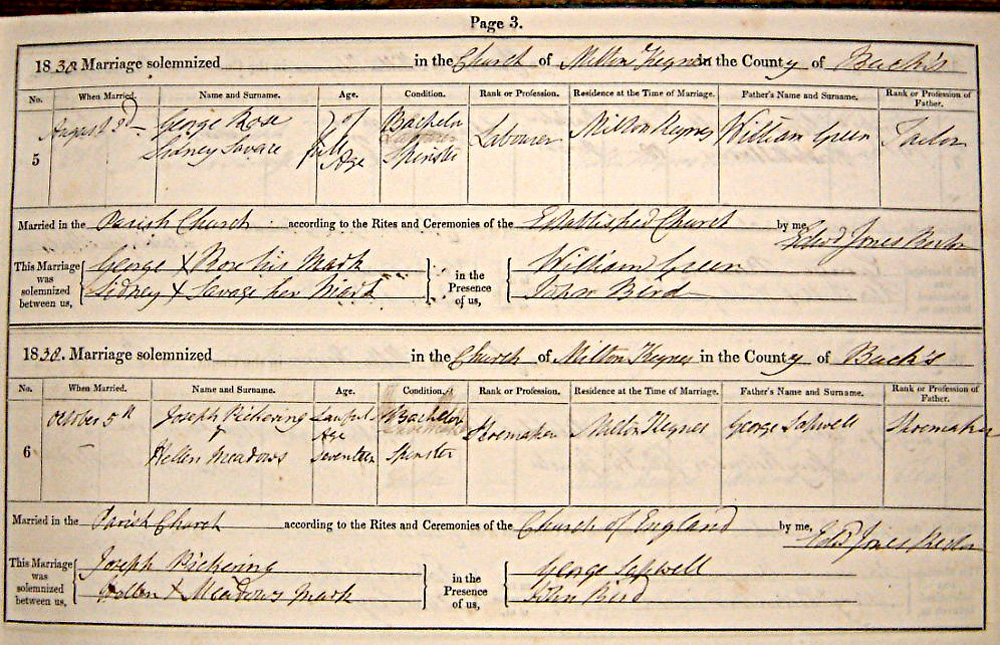 Page 3.
1838 Marriage solemnized in the Church of Milton Keynes in the County of Buck's
No. When Married. Name and Surname. Age. Condition. Rank or Profession. Residence at the Time of Marriage. Father's Name and Surname. Rank or Profession of Father.
5 August 3d George Rose of Bachelor Labourer Milton Keynes William Green Tailor
Sidney Savage full Age Spinster
Married in the Parish Church according to the Rites and Ceremonies of the Established Church by me, Edwd Jones Rector
This Marriage was solemnized between us, George X Rose his Mark in the Presence of us, William Green
Sidney X Savage her Mark John Bird
1838. Marriage solemnized in the Church of Milton Keynes in the County of Buck's
No. When Married. Name and Surname. Age. Condition. Rank or Profession. Residence at the Time of Marriage. Father's Name and Surname. Rank or Profession of Father.
6 October 5th Joseph Pickering Lawful Age Bachelor Shoemaker Milton Keynes George Sapwell Shoemaker
Hellen Meadows Seventeen Spinster
Married in the Parish Church according to the Rites and Ceremonies of the Church of England by me, Edwd Jones Rector
This Marriage was solemnized between us, Joseph Pickering in the Presence of us, George Sapwell
Hellen X Meadows Mark John Bird